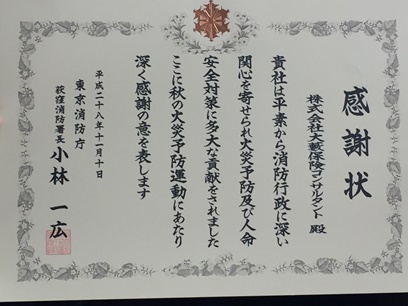 感謝状
株式会社大藪保険コンサルタント 殿
貴社は平素から消防行政に深い
関心を寄せられ火災予防及び人命
安全対策に多大な貢献をされました
ここに秋の火災予防運動にあたり
深く感謝の意を表します
平成二十八年十一月十日
東京消防庁
荻窪消防署長 小林一広